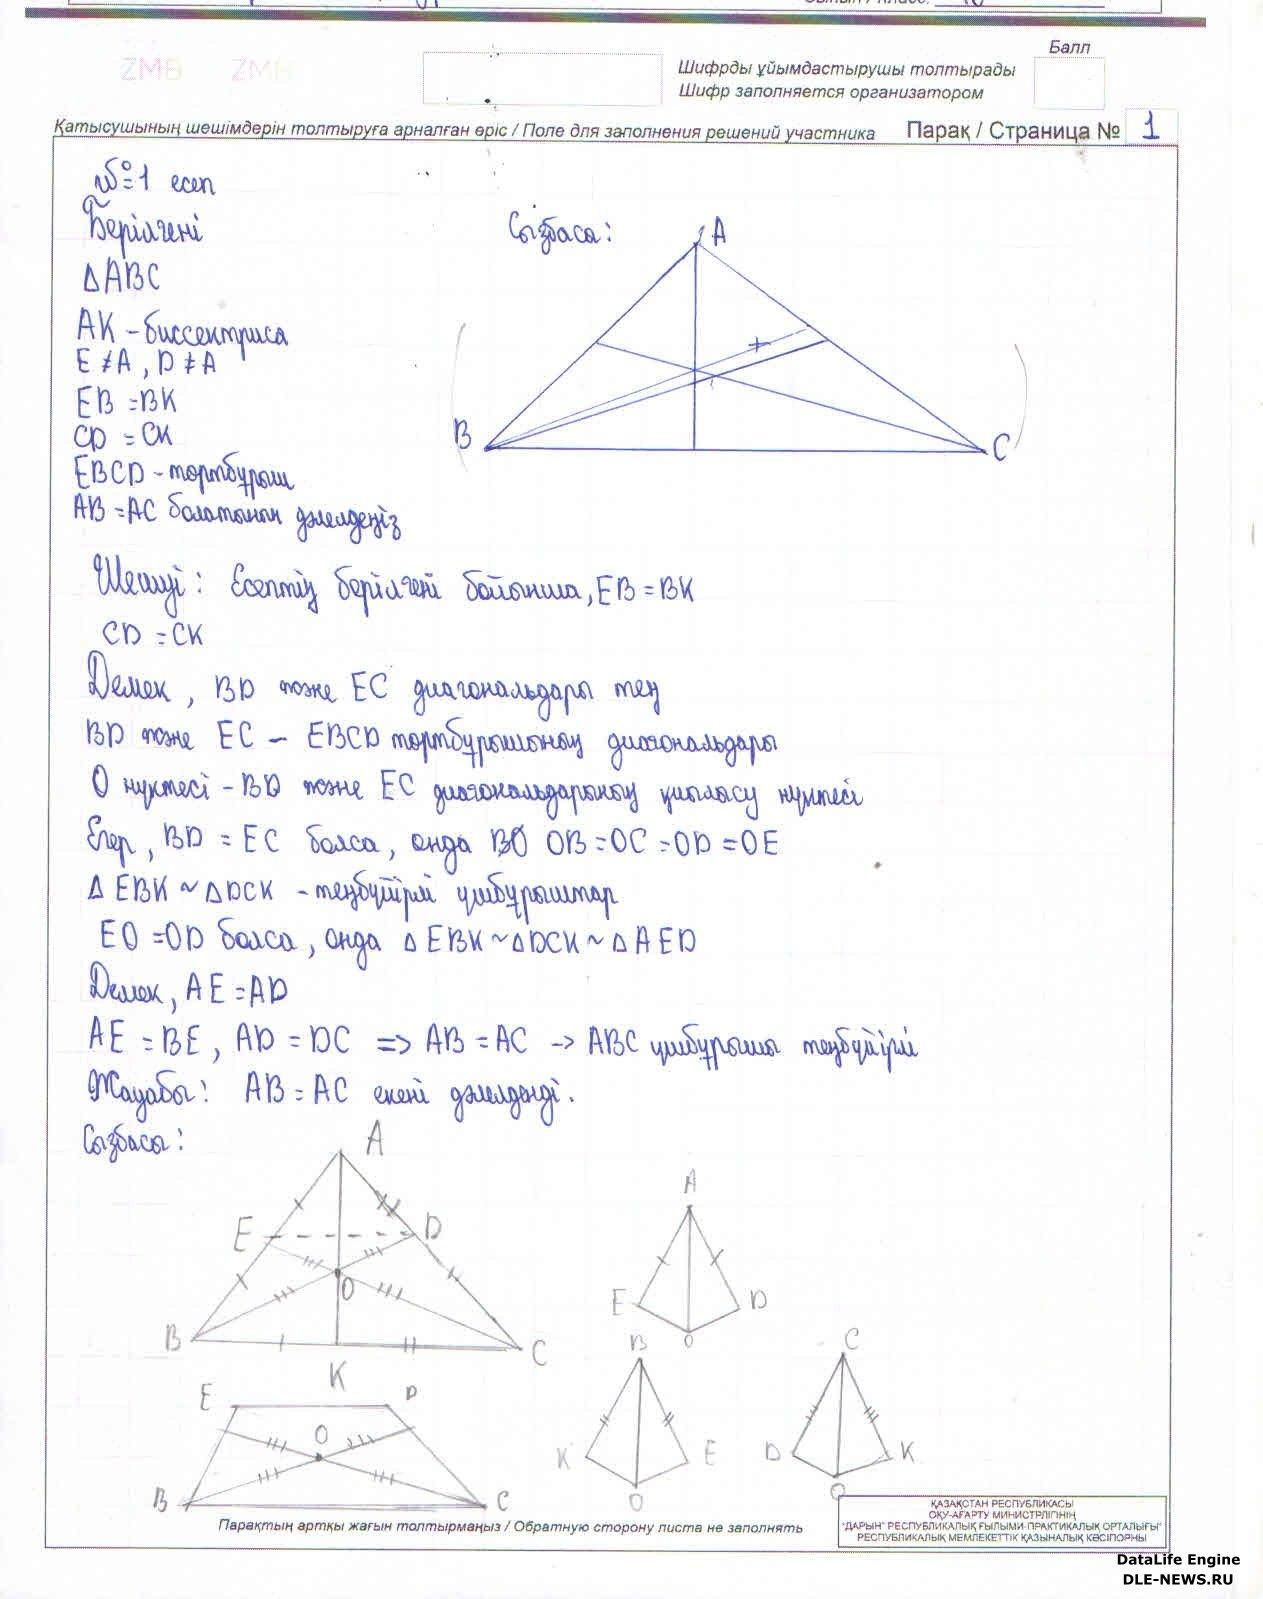 ZMB ZMB
Балл
Шифрды ұйымдастырушы толтырады
Шифр заполняется организатором
Қатысушының шешімдерін толтыруға арналған өріс / Поле для заполнения решений участника Парақ / Страница № 1
№1 есеп
Берілгені
Сызбасы:
A
△ABC
AK - биссектриса
E ≠ A, D ≠ A
EB = BK
CD = CK
B
C
EBCD - төртбұрыш
AB = AC болатынын дәлелдеңіз
Шешуі: Есептің берілгені бойынша, EB = BK
CD = CK
Демек, BD және EC диагональдары тең
BD және EC - EBCD төртбұрышының диагональдары
O нүктесі - BD және EC диагональдарының қиылысу нүктесі
Егер, BD = EC болса, онда BO OB = OC = OD = OE
△EBK ~ △DCK - теңбүйірлі үшбұрыштар
EO = OD болса, онда △EBK ~ △DCK ~ △AED
Демек, AE = AD
AE = BE, AD = DC => AB = AC -> ABC үшбұрышы теңбүйірлі
Жауабы: AB = AC екені дәлелденді.
Сызбасы:
A
E D
O
B C
K
A
E D
O
E D
O
B C
B
K E
O
C
D K
O
Парақтың артқы жағын толтырмаңыз / Обратную сторону листа не заполнять
ҚАЗАҚСТАН РЕСПУБЛИКАСЫ
ОҚУ-АҒАРТУ МИНИСТРЛІГІНІҢ
"ДАРЫН" РЕСПУБЛИКАЛЫҚ ҒЫЛЫМИ-ПРАКТИКАЛЫҚ ОРТАЛЫҒЫ"
РЕСПУБЛИКАЛЫҚ МЕМЛЕКЕТТІК ҚАЗЫНАЛЫҚ КӘСІПОРНЫ
DataLife Engine
DLE-NEWS.RU